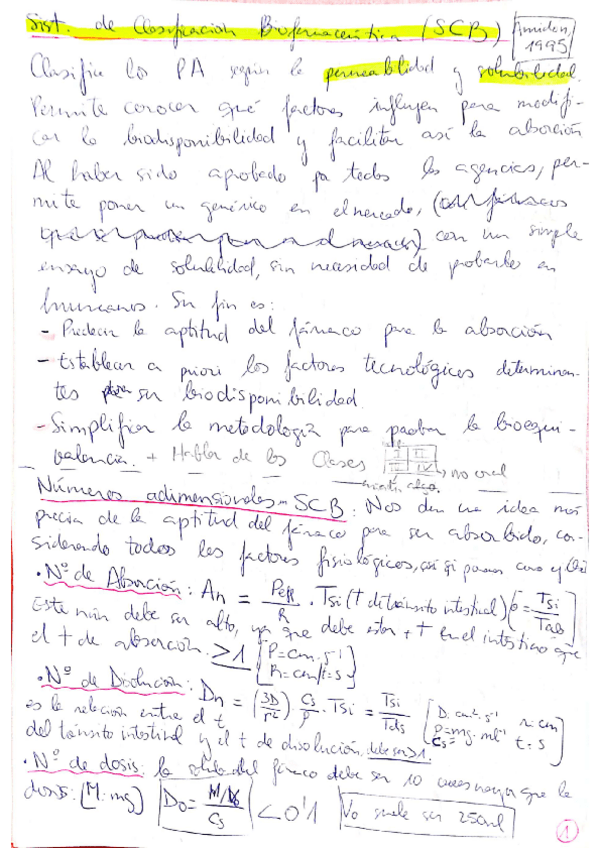 Sist. de Clasificación Biofarmacéutica (SCB) Amidon, 1995
Clasifica los PA según la permeabilidad y solubilidad.
Permite conocer qué factores influyen para modifi-
car la biodisponibilidad y facilitar así la absorción
Al haber sido aprobado por todas las agencias, per-
mite poner un genérico en el mercado, con un simple
ensayo de solubilidad, sin necesidad de probarlo en
humanos. Su fin es:
- Predecir la aptitud del fármaco para la absorción
- Establecer a priori los factores tecnológicos determinan-
tes para su biodisponibilidad
- Simplificar la metodología para probar la bioequi-
valencia. + Hablar de las Clases I II III IV no oral
Números adimensionales - SCB: Nos dan una idea más
precisa de la aptitud del fármaco para ser absorbido, con-
siderando todos los factores fisiológicos, así
• Nº de Absorción: An = Peff/R · Tsi (t de tránsito intestinal) = Tsi/Tabs
Este núm debe ser alto, ya que debe estar + t en el intestino que
el t de absorción. ≥1 [P=cm·s⁻¹
R=cm/t=s]
• Nº de Disolución: Dn = (3D/r²) Cs/ρ · Tsi = Tsi/Tdis [D: cm²·s⁻¹ r: cm
ρ=mg·ml⁻¹ t=s
Cs=]
es la relación entre el t
del tránsito intestinal y el t de disolución, debe ser >1.
• Nº de dosis: la del fármaco debe ser 10 veces mayor que la
dosis: [M: mg] Do = M/Vo / Cs < 0'1 Vo suele ser 250ml
1